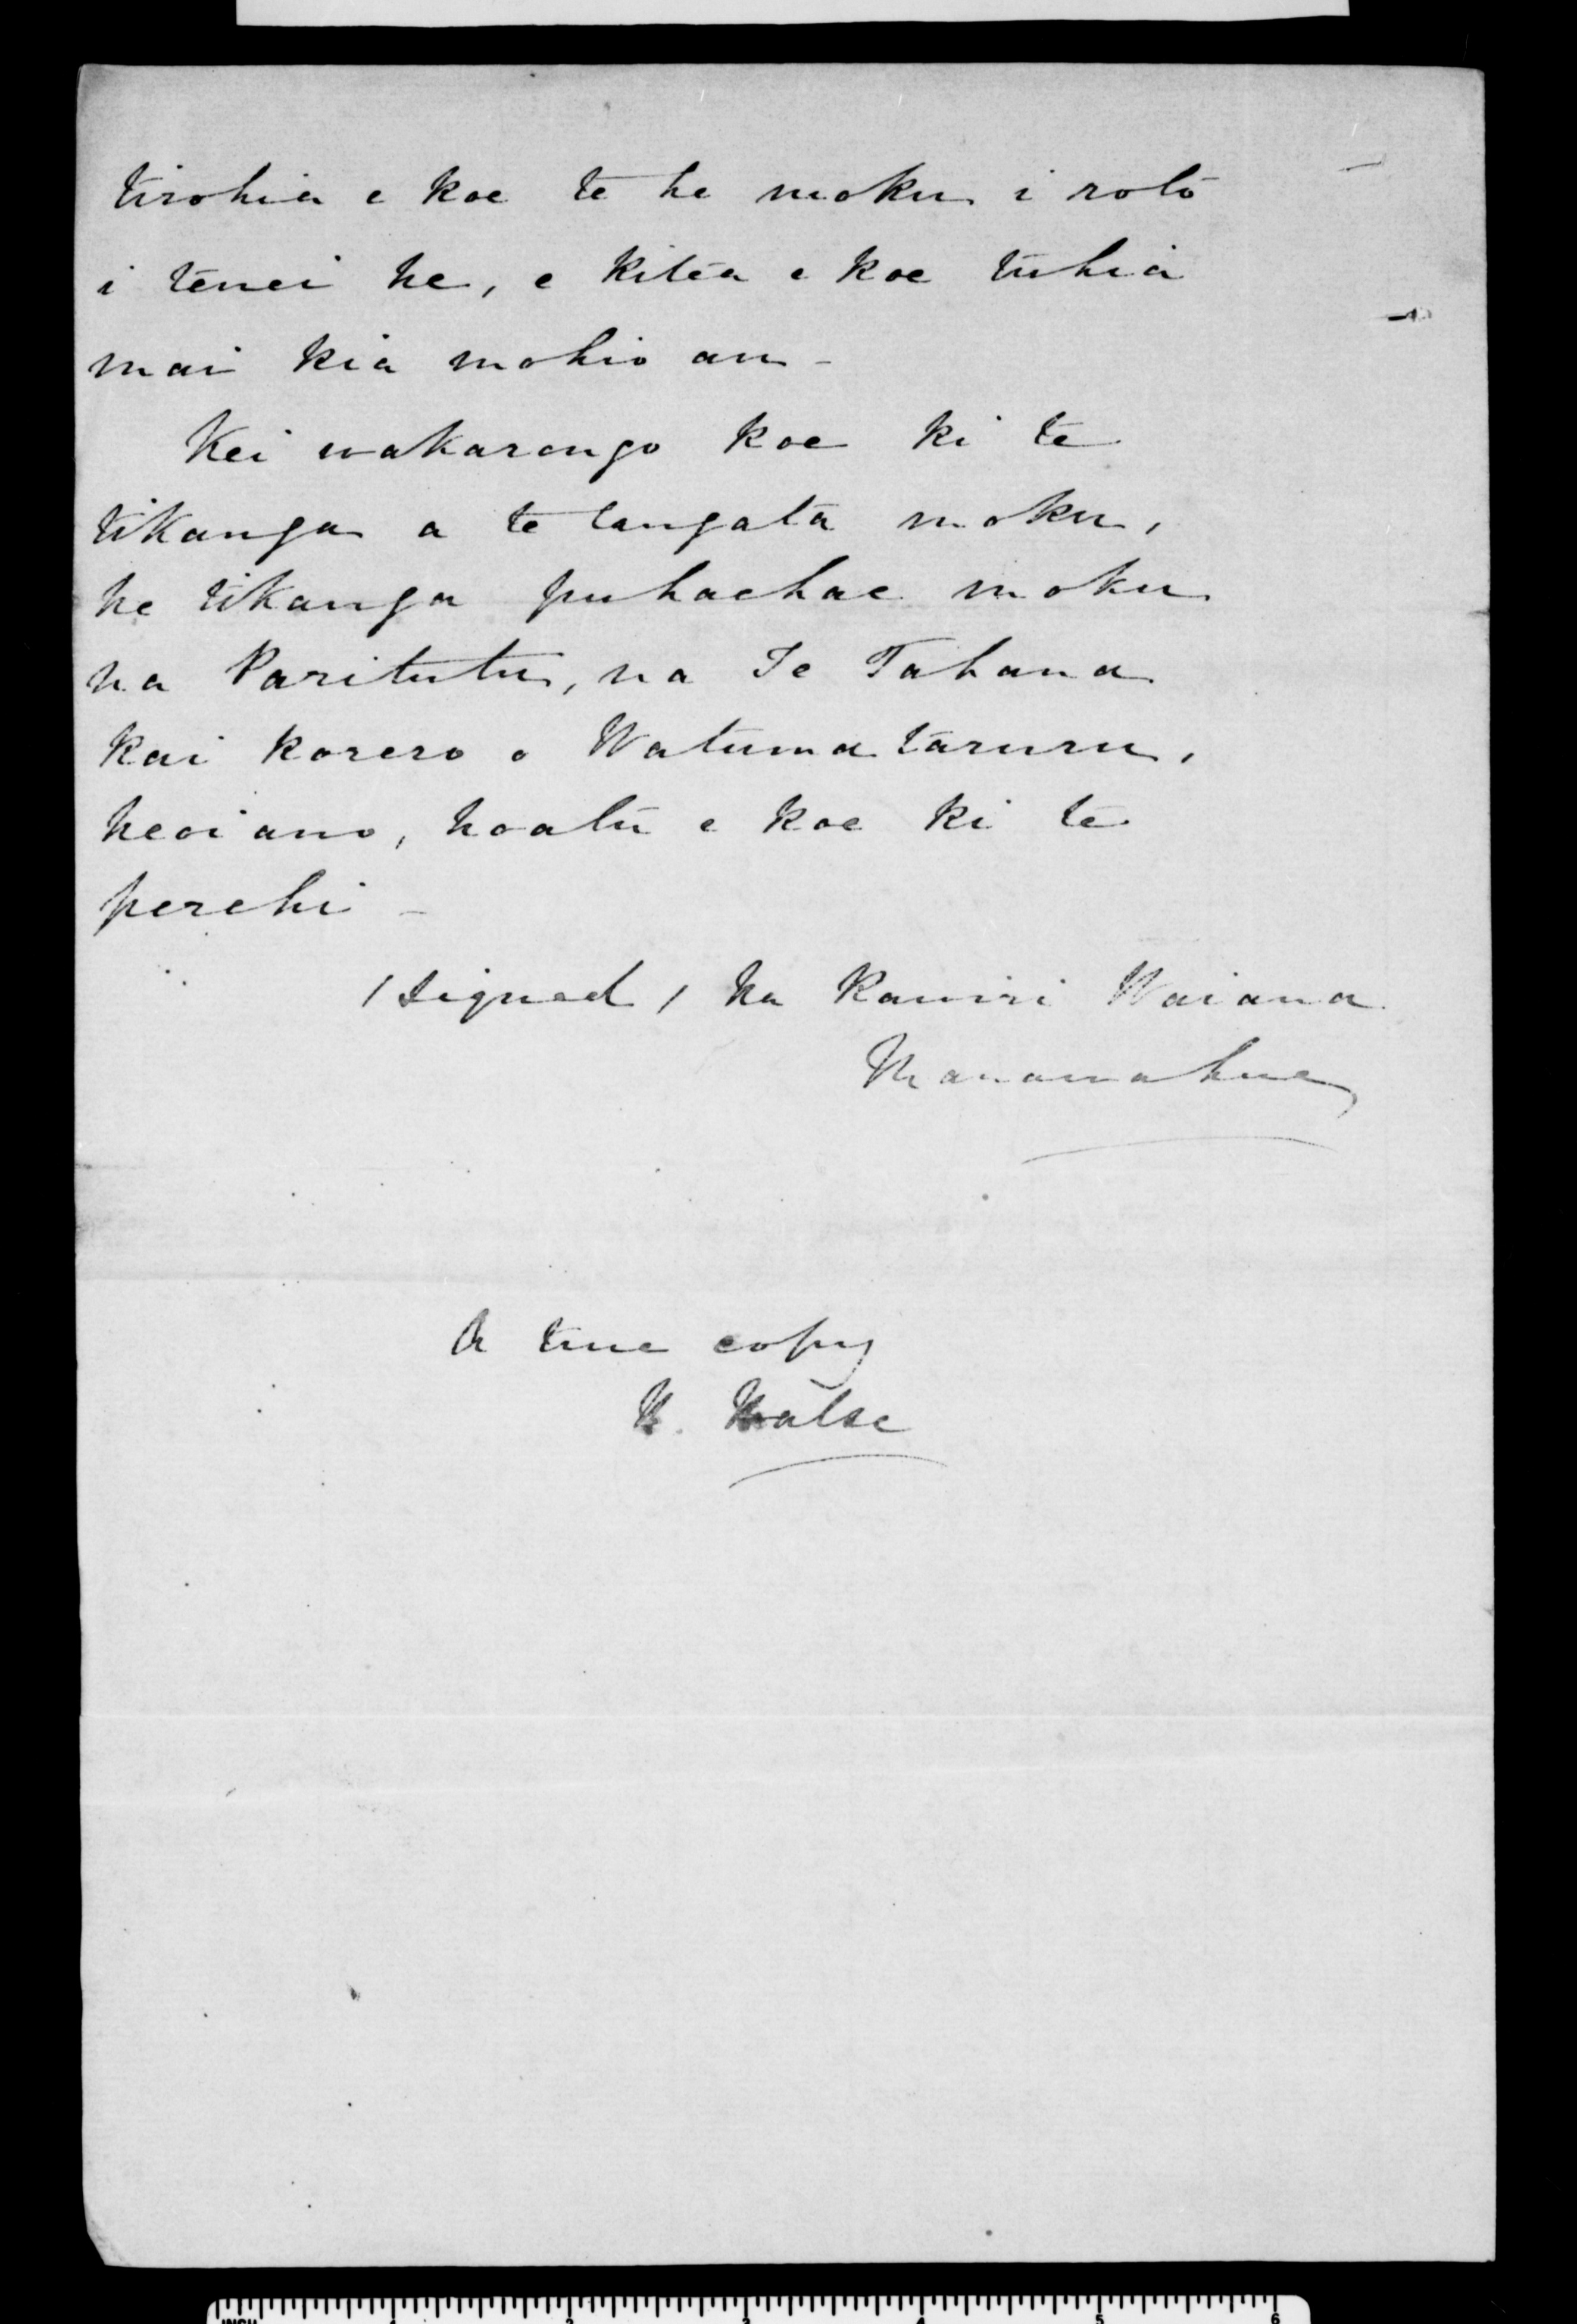 tirohia e koe te he moku i roto
i tenei he, e kitea e koe tuhia
mai kia mohio au –
Kei wakarongo koe ki te
tikanga a te tangata moku,
he tikanga puhaehae moku
na Paritutu, na Te Tahana
kai korero o Watumataruru,
heoi ano, hoatu e koe ki te
perehi –
/signed/ Na Rawiri Waiana
Manawahue
A true copy
INCH 1 2 3 4 5 6